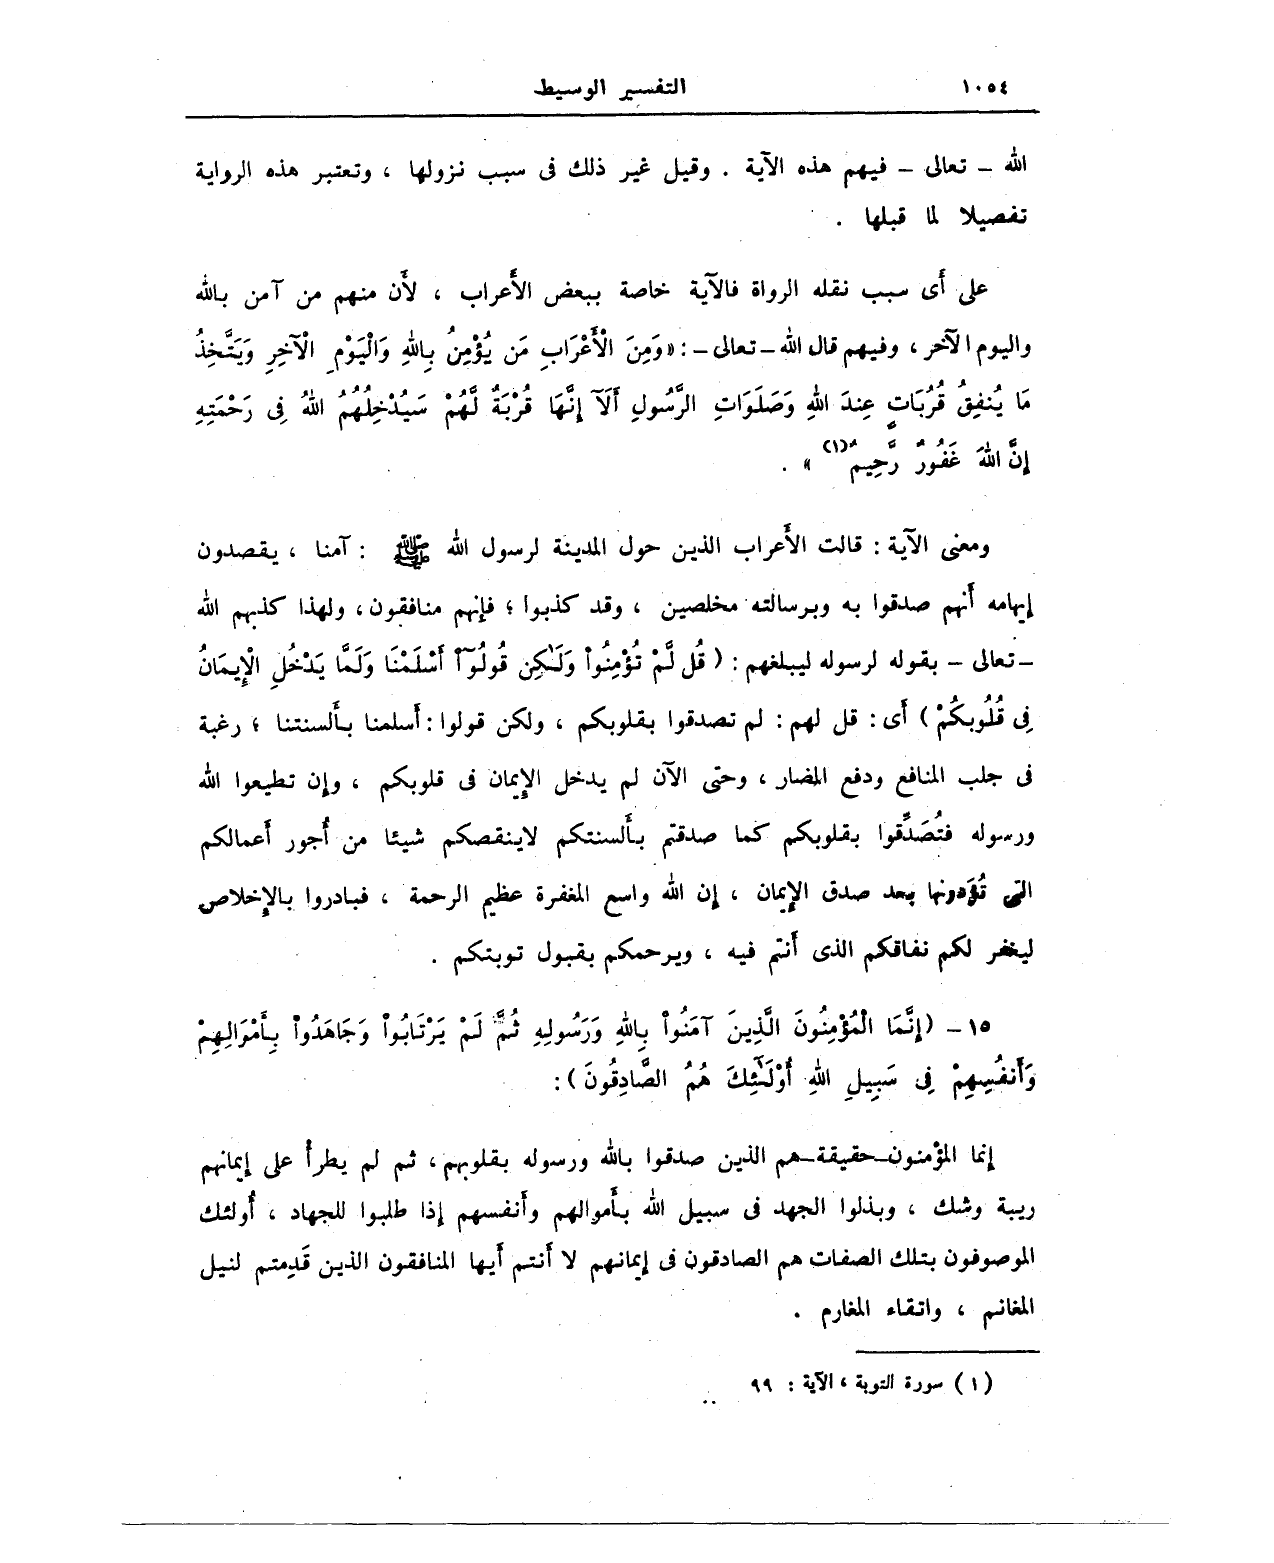 ١٠٥٤ التفسير الوسيط
الله ــ تعالى ــ فيهم هذه الآية . وقيل غير ذلك فى سبب نزولها ، وتعتبر هذه الرواية
تفصيلا لما قبلها .
على أَى سبب نقله الرواة فالآية خاصة ببعض الأَعراب ، لأَن منهم من آمن بالله
واليوم الآخر ، وفيهم قال الله ــ تعالى ــ : «وَمِنَ الْأَعْرَابِ مَن يُؤْمِنُ بِاللهِ وَالْيَوْمِ الْآخِرِ وَيَتَّخِذُ
مَا يُنفِقُ قُرُبَاتٍ عِندَ اللهِ وَصَلَوَاتِ الرَّسُولِ أَلَآ إِنَّهَا قُرْبَةٌ لَّهُمْ سَيُدْخِلُهُمُ اللهُ فِى رَحْمَتِهِ
إِنَّ اللهَ غَفُورٌ رَّحِيمٌ (١) » .
ومعنى الآية : قالت الأَعراب الذين حول المدينة لرسول الله ﷺ : آمنا ، يقصدون
إيهامه أَنهم صدقوا به وبرسالته مخلصين ، وقد كذبوا ؛ فإنهم منافقون ، ولهذا كذبهم الله
ــ تعالى ــ بقوله لرسوله ليبلغهم : ( قُل لَّمْ تُؤْمِنُواْ وَلَـٰكِن قُولُوٓاْ أَسْلَمْنَا وَلَمَّا يَدْخُلِ الْإِيمَانُ
فِى قُلُوبِكُمْ ) أَى : قل لهم : لم تصدقوا بقلوبكم ، ولكن قولوا : أَسلمنا بأَلسنتنا ؛ رغبة
فى جلب المنافع ودفع المضار ، وحتى الآن لم يدخل الإيمان فى قلوبكم ، وإن تطيعوا الله
ورسوله فتُصَدِّقوا بقلوبكم كما صدقتم بأَلسنتكم لاينقصكم شيئا من أُجور أَعمالكم
التى تُؤَدونها بعد صدق الإِيمان ، إن الله واسع المغفرة عظيم الرحمة ، فبادروا بالإِخلاص
ليغفر لكم نفاقكم الذى أَنتم فيه ، ويرحمكم بقبول توبتكم .
١٥ ــ (إِنَّمَا الْمُؤْمِنُونَ الَّذِينَ آمَنُواْ بِاللهِ وَرَسُولِهِ ثُمَّ لَمْ يَرْتَابُواْ وَجَاهَدُواْ بِأَمْوَالِهِمْ
وَأَنفُسِهِمْ فِى سَبِيلِ اللهِ أُوْلَـٰٓئِكَ هُمُ الصَّادِقُونَ ) :
إنما المؤْمنون ــ حقيقة ــ هم الذين صدقوا بالله ورسوله بقلوبهم ، ثم لم يطرأ على إيمانهم
ريبة وشك ، وبذلوا الجهد فى سبيل الله بأَموالهم وأَنفسهم إذا طلبوا للجهاد ، أُولئك
الموصوفون بتلك الصفات هم الصادقون فى إيمانهم لا أَنتم أَيها المنافقون الذين قَدِمتم لنيل
المغانم ، واتقاء المغارم .
(١) سورة التوبة ، الآية : ٩٩